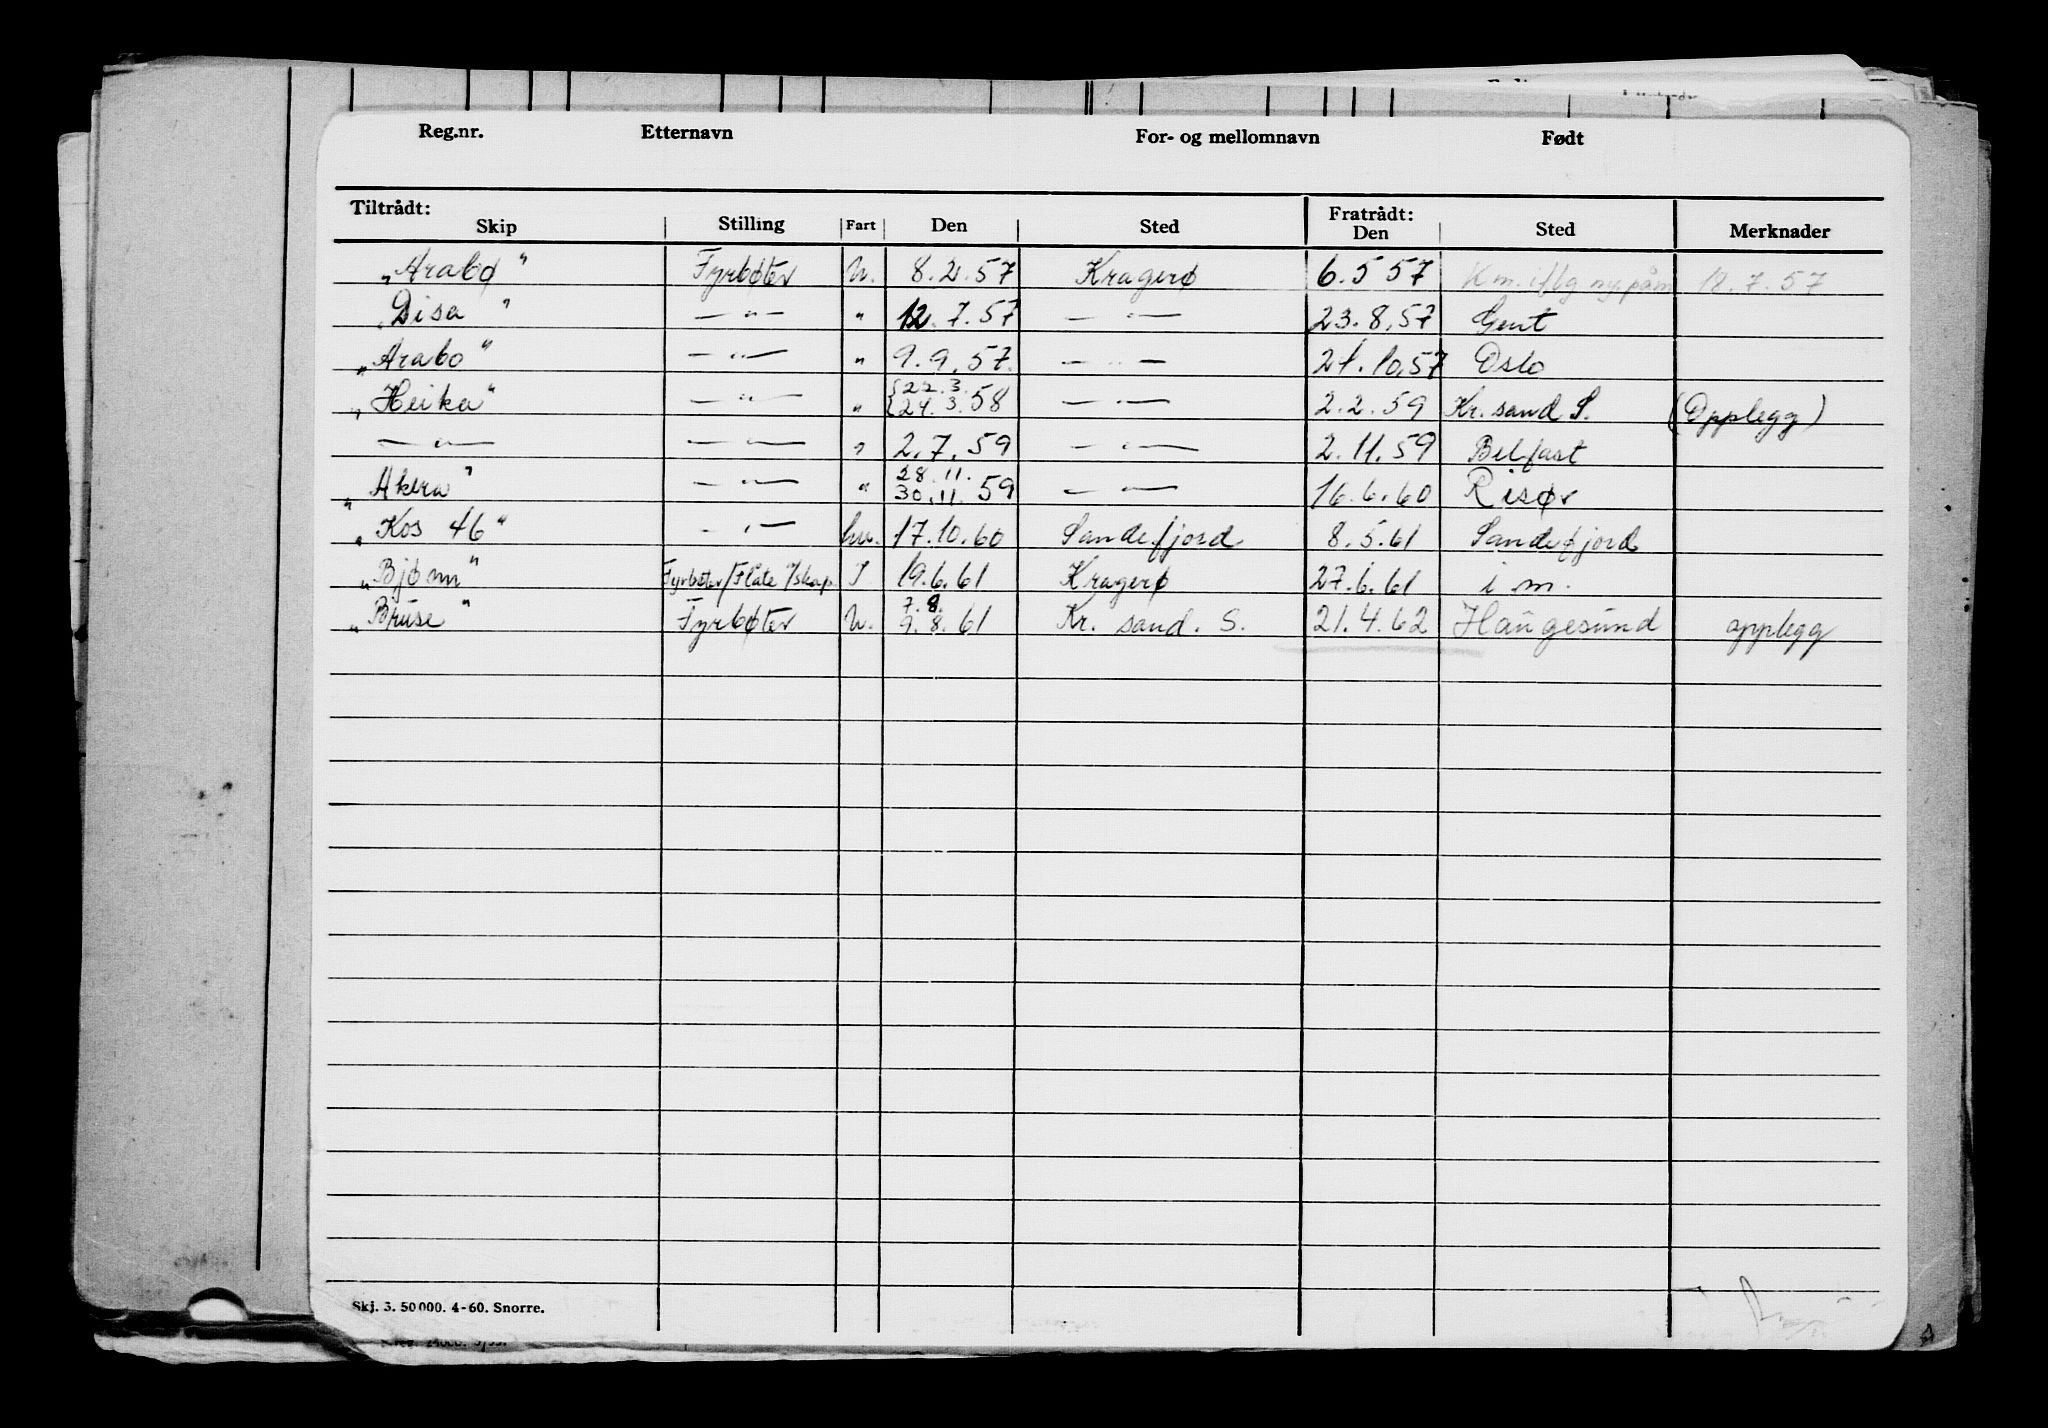 Reg.nr. Etternavn For- og mellomnavn Født
Tiltrådt: Fratrådt:
Skip Stilling Fart Den Sted Den Sted Merknader
"Arabø" Fyrbøter U. 8.2.57 Kragerø 6.5 57 K m. iflg ny. påm 12.7.57
"Disa" — " — " 12.7.57 — " — 23.8.57 Gent
"Arabo" — " — " 9.9.57. — " — 21.10.57 Oslo
"Heika" — " — " {22.3. 24.3.58 — " — 2.2.59 Kr. sand S. (Opplegg)
— " — — " — " 2.7.59 — " — 2.11.59 Belfast
"Akera" — " — " 28.11. 30.11.59 — " — 16.6.60 Risør
"Kos 46" — " — hv. 17.10.60 Sandefjord 8.5.61 Sandefjord
"Bjønn" Fyrbøter/Flåte /skap I 19.6.61 Kragerø 27.6.61 i m.
"Bruse" Fyrbøter U. 7.8. 9.8.61 Kr. sand. S. 21.4.62 Haugesund opplegg
Skj. 3. 50 000. 4-60. Snorre.